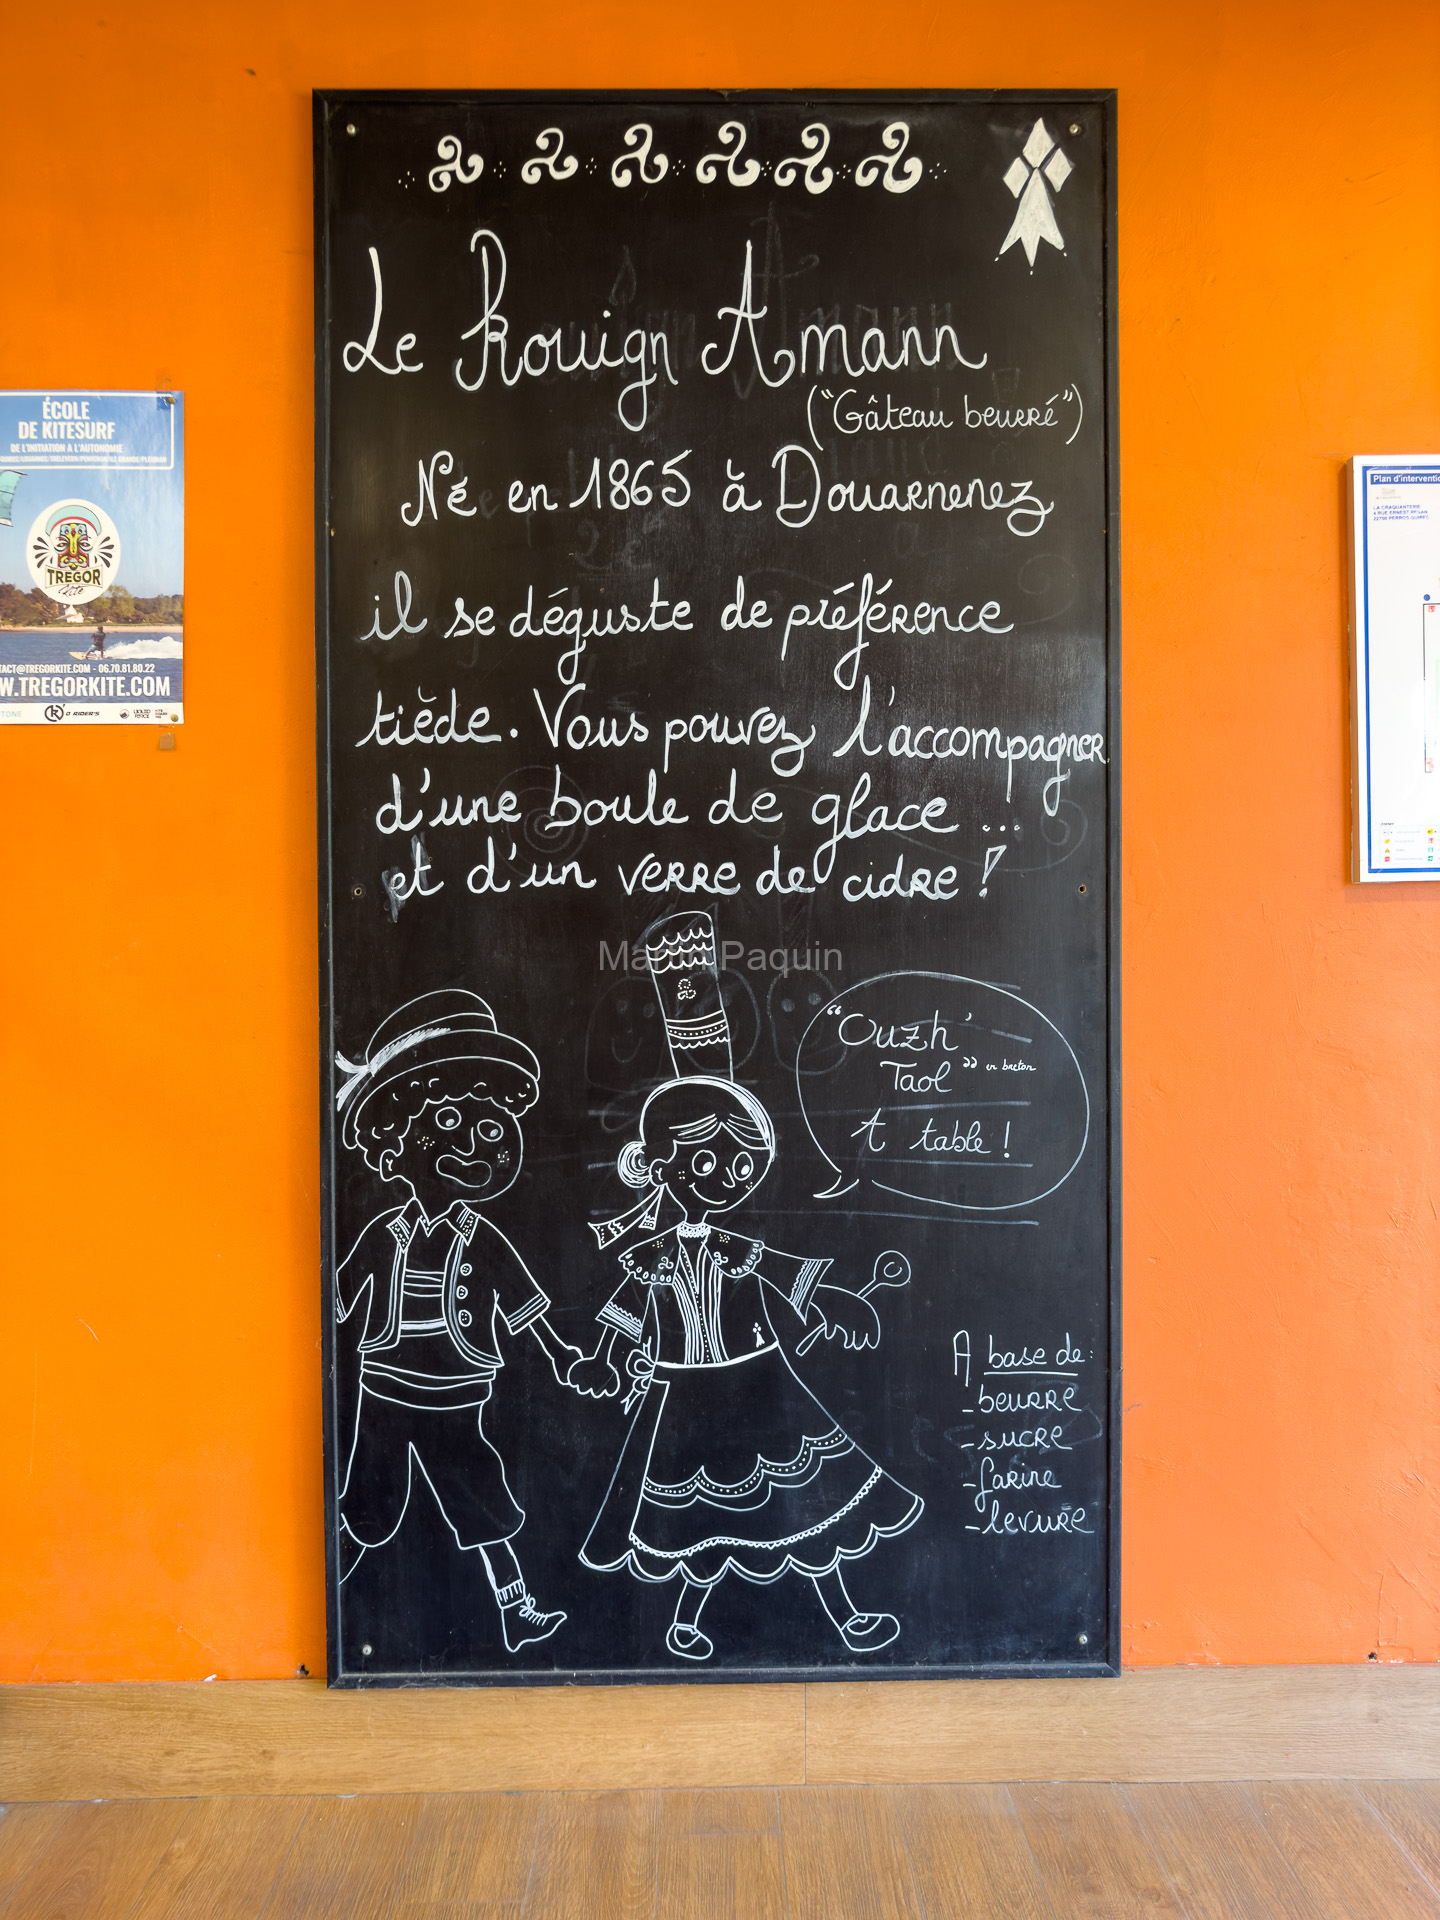 Le Kouign Amann
("Gâteau beurré")
Né en 1865 à Douarnenez
il se déguste de préférence
tiède. Vous pouvez l'accompagner
d'une boule de glace ...
et d'un verre de cidre !
"Ouzh'
Taol" en breton
A table !
A base de :
- beurre
- sucre
- farine
- levure
ÉCOLE
DE KITESURF
DE L'INITIATION A L'AUTONOMIE
TREGOR
KITE
TACT@TREGORKITE.COM - 06.70.81.80.22
W.TREGORKITE.COM
RIDER'S
Plan d'interventio
LA CRAQUANTERIE
4 RUE ERNEST RENAN
22700 PERROS GUIREC
Paquin